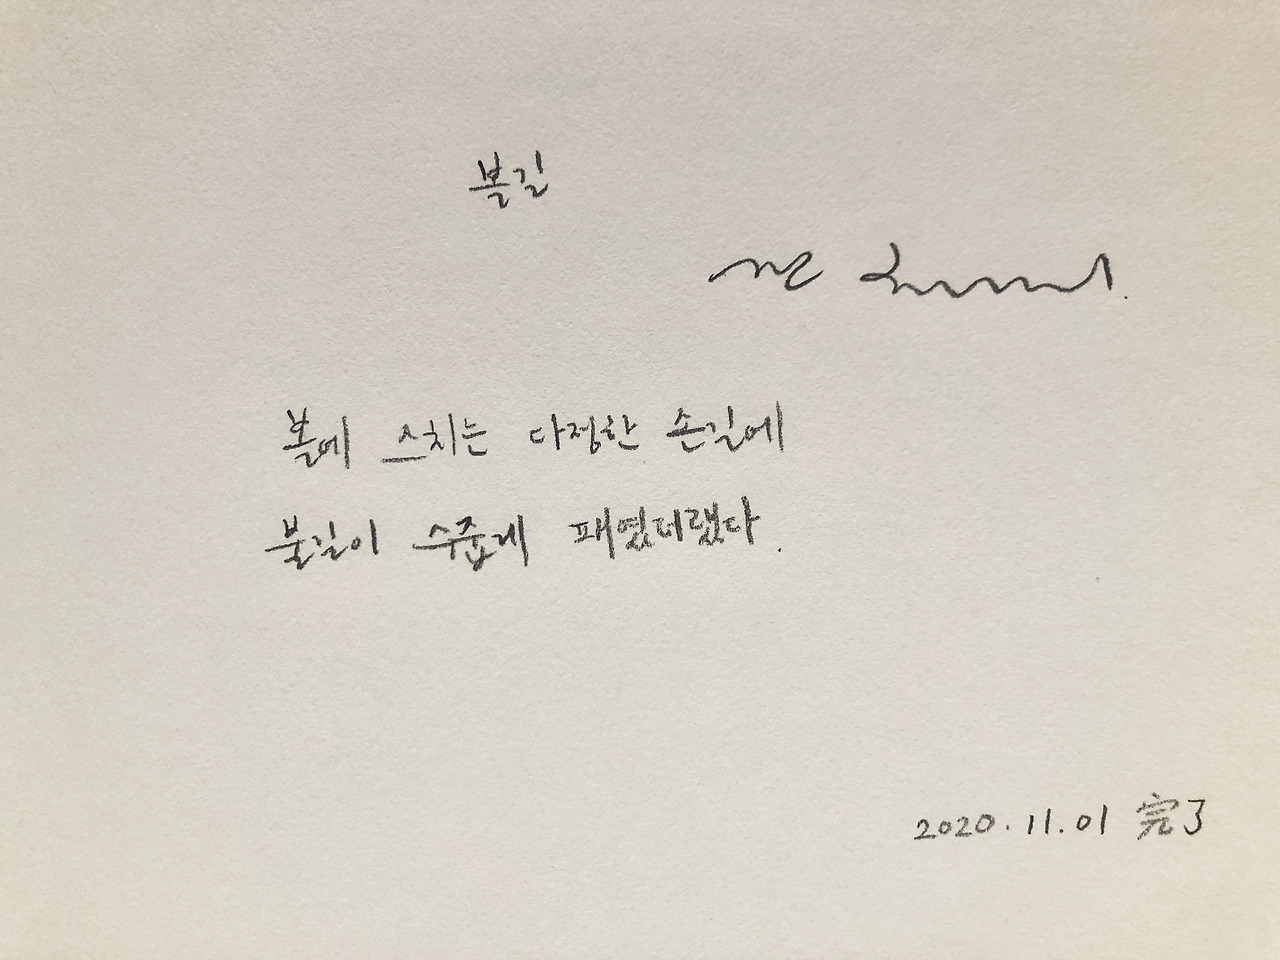 볼길
볼에 스치는 다정한 손길에
불길이 수줍게 패였더랬다.
2020.11.01 完了